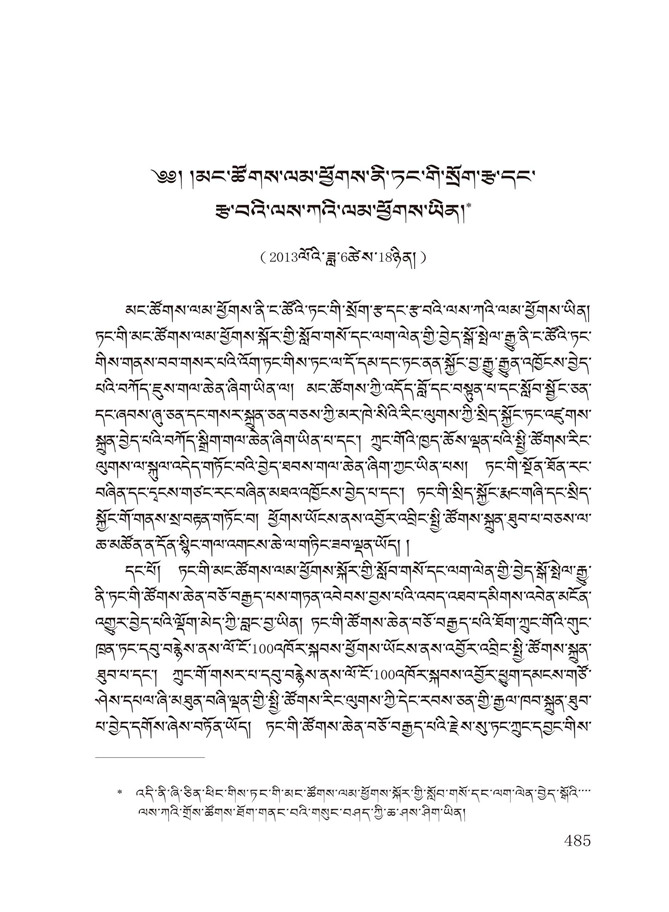 ༄༅། །མང་ཚོགས་ལམ་ཕྱོགས་ནི་ཏང་གི་སྲོག་རྩ་དང་
རྩ་བའི་ལས་ཀའི་ལམ་ཕྱོགས་ཡིན།*
（2013ལོའི་ཟླ་6ཚེས་18ཉིན།）
མང་ཚོགས་ལམ་ཕྱོགས་ནི་ང་ཚོའི་ཏང་གི་སྲོག་རྩ་དང་རྩ་བའི་ལས་ཀའི་ལམ་ཕྱོགས་ཡིན།
ཏང་གི་མང་ཚོགས་ལམ་ཕྱོགས་སྐོར་གྱི་སློབ་གསོ་དང་ལག་ལེན་གྱི་བྱེད་སྒོ་སྤེལ་རྒྱུ་ནི་ང་ཚོའི་ཏང་
གིས་གནས་བབ་གསར་པའི་འོག་ཏང་གིས་ཏང་ལ་དོ་དམ་དང་ཏང་ནན་སྐྱོང་བྱ་རྒྱུ་རྒྱུན་འཁྱོངས་བྱེད་
པའི་བཀོད་ཇུས་གལ་ཆེན་ཞིག་ཡིན་ལ། མང་ཚོགས་ཀྱི་འདོད་བློ་དང་བསྟུན་པ་དང་སློབ་སྦྱོང་ཅན་
དང་ཞབས་ཞུ་ཅན་དང་གསར་སྐྲུན་ཅན་བཅས་ཀྱི་མར་ཁེ་སིའི་རིང་ལུགས་ཀྱི་སྲིད་སྐྱོང་ཏང་འཛུགས་
སྐྲུན་བྱེད་པའི་བཀོད་སྒྲིག་གལ་ཆེན་ཞིག་ཡིན་པ་དང་། ཀྲུང་གོའི་ཁྱད་ཆོས་ལྡན་པའི་སྤྱི་ཚོགས་རིང་
ལུགས་ལ་སྐུལ་འདེད་གཏོང་བའི་བྱེད་ཐབས་གལ་ཆེན་ཞིག་ཀྱང་ཡིན་པས། ཏང་གི་སྔོན་ཐོན་རང་
བཞིན་དང་དྭངས་གཙང་རང་བཞིན་མཐའ་འཁྱོངས་བྱེད་པ་དང་། ཏང་གི་སྲིད་སྐྱོང་རྨང་གཞི་དང་སྲིད་
སྐྱོང་གོ་གནས་སྲ་བརྟན་གཏོང་བ། ཕྱོགས་ཡོངས་ནས་འབྱོར་འབྲིང་སྤྱི་ཚོགས་སྐྲུན་ཐུབ་པ་བཅས་ལ་
ཆ་མཚོན་ན་དོན་སྙིང་གལ་འགངས་ཆེ་ལ་གཏིང་ཟབ་ལྡན་ཡོད། །
དང་པོ། ཏང་གི་མང་ཚོགས་ལམ་ཕྱོགས་སྐོར་གྱི་སློབ་གསོ་དང་ལག་ལེན་གྱི་བྱེད་སྒོ་སྤེལ་རྒྱུ་
ནི་ཏང་གི་ཚོགས་ཆེན་བཅོ་བརྒྱད་པས་གཏན་འབེབས་བྱས་པའི་འབད་འཐབ་དམིགས་འབེན་མངོན་
འགྱུར་བྱེད་པའི་ལྡོག་མེད་ཀྱི་བླང་བྱ་ཡིན། ཏང་གི་ཚོགས་ཆེན་བཅོ་བརྒྱད་པའི་ཐོག་ཀྲུང་གོའི་གུང་
ཁྲན་ཏང་དབུ་བརྙེས་ནས་ལོ་ངོ་100འཁོར་སྐབས་ཕྱོགས་ཡོངས་ནས་འབྱོར་འབྲིང་སྤྱི་ཚོགས་སྐྲུན་
ཐུབ་པ་དང་། ཀྲུང་གོ་གསར་པ་དབུ་བརྙེས་ནས་ལོ་ངོ་100འཁོར་སྐབས་འབྱོར་ཕྱུག་དམངས་གཙོ་
ཤེས་དཔལ་ཞི་མཐུན་བཞི་ལྡན་གྱི་སྤྱི་ཚོགས་རིང་ལུགས་ཀྱི་དེང་རབས་ཅན་གྱི་རྒྱལ་ཁབ་སྐྲུན་ཐུབ་
པ་བྱེད་དགོས་ཞེས་བཏོན་ཡོད། ཏང་གི་ཚོགས་ཆེན་བཅོ་བརྒྱད་པའི་རྗེས་སུ་ཏང་ཀྲུང་དབྱང་གིས་
* འདི་ནི་ཞི་ཅིན་ཕིང་གིས་ཏང་གི་མང་ཚོགས་ལམ་ཕྱོགས་སྐོར་གྱི་སློབ་གསོ་དང་ལག་ལེན་བྱེད་སྒོའི་
ལས་ཀའི་གྲོས་ཚོགས་ཐོག་གནང་བའི་གསུང་བཤད་ཀྱི་ཆ་ཤས་ཤིག་ཡིན།
485